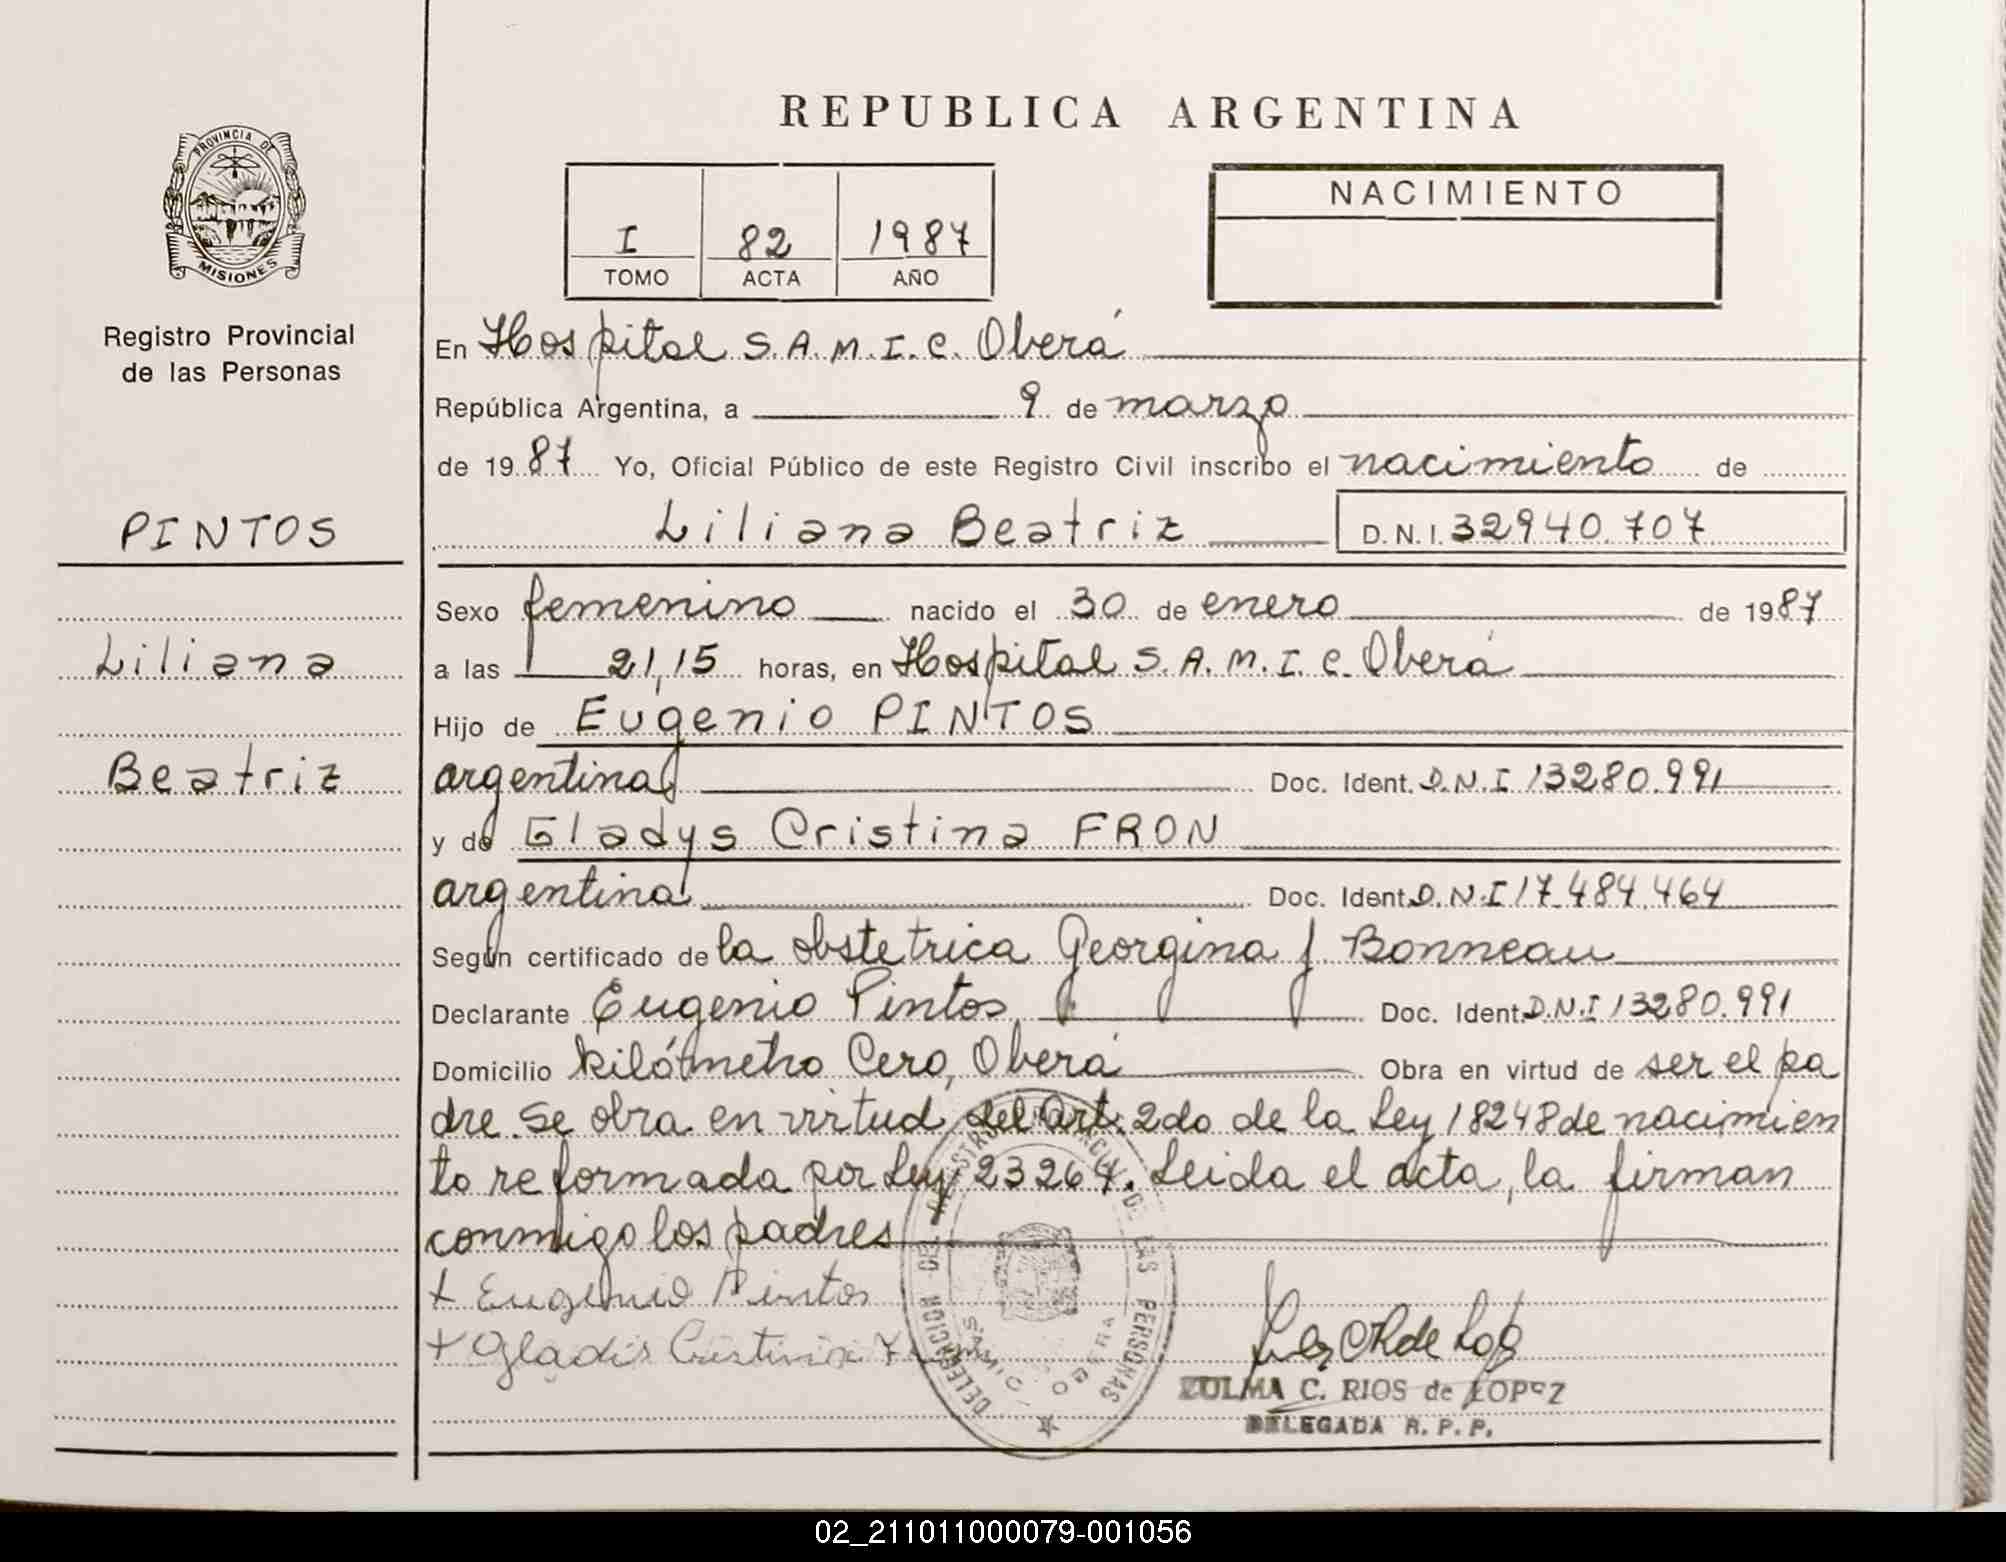 REPUBLICA ARGENTINA
PROVINCIA DE
MISIONES
Registro Provincial
de las Personas
NACIMIENTO
I 82 1987
TOMO ACTA AÑO
En Hospital S.A.M.I.C. Oberá
República Argentina, a 9 de marzo
de 1987 Yo, Oficial Público de este Registro Civil inscribo el nacimiento de
PINTOS
Liliana Beatriz D.N.I. 32940.707
Sexo femenino nacido el 30 de enero de 1987
Liliana
a las 21,15 horas, en Hospital S.A.M.I.C. Oberá
Hijo de Eugenio PINTOS
Beatriz
argentina Doc. Ident. D.N.I 13280.991
y de Gladys Cristina FRON
argentina Doc. Ident. D.N.I 17.484.464
Según certificado de la obstetrica Georgina J Bonneau
Declarante Eugenio Pintos Doc. Ident. D.N.I 13280.991
Domicilio kilómetro Cero, Oberá Obra en virtud de ser el pa
dre. Se obra en virtud del art. 2do de la Ley 18248 de nacimien
to reformada por Ley 23264. Leida el acta, la firman
conmigo los padres
+ Eugenio Pintos
+ Gladis Cristina
DELEGACION DEL REGISTRO DE LAS PERSONAS
SAMIC - OBERA
ZULMA C. RIOS de LOPEZ
DELEGADA R. P. P.
02_211011000079-001056